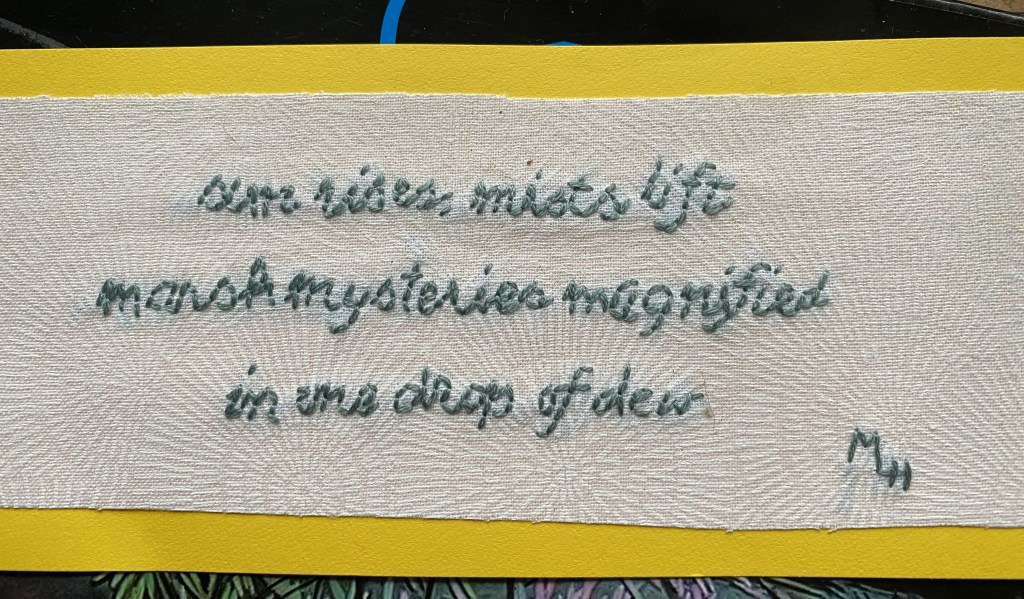 sun rises, mists lift
marsh mysteries magnified
in one drop of dew
MH